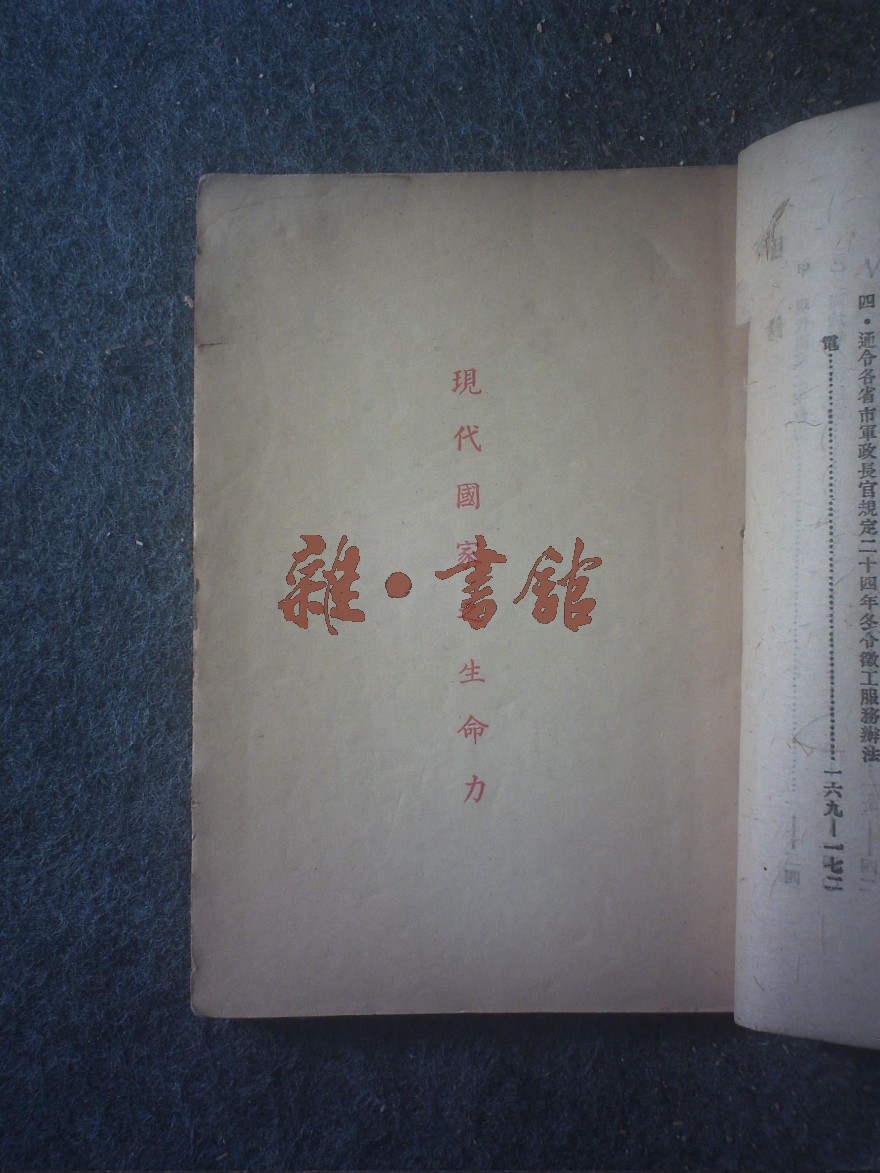 四・通令各省市軍政長官規定二十四年冬令徵工服務辦法
電……………………一六九—一七二
現代國家 生命力
雜・書館